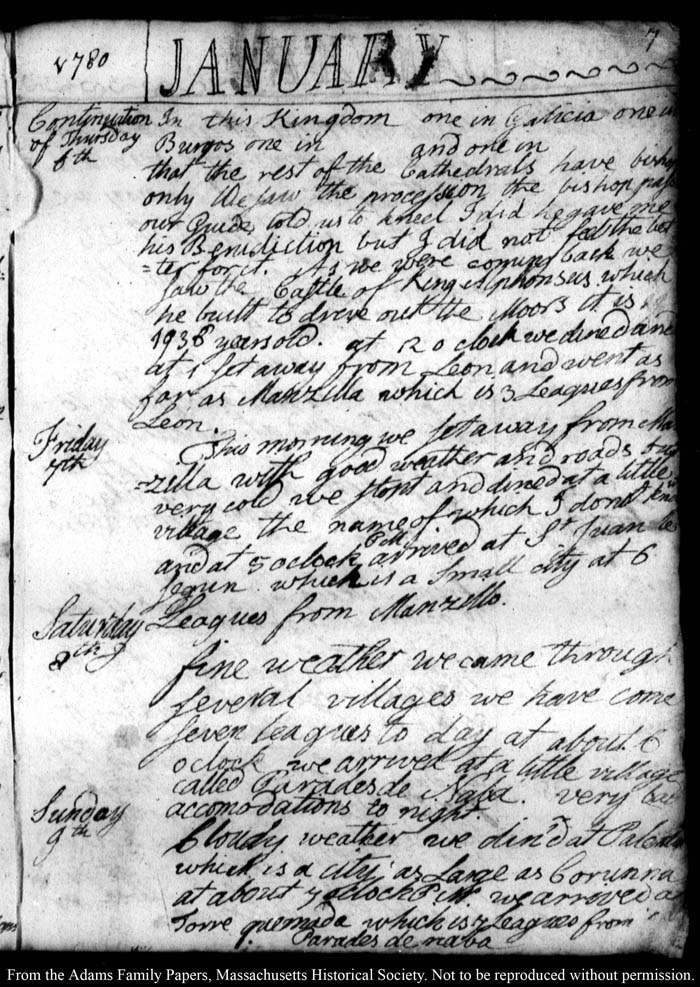 1780 JANUARY 7
Continuation of Thursday 6th
In this Kingdom one in Galicia one in
Burgos one in and one in
that the rest of the Cathedrals have bishops
only We saw the procession the bishop pass
our Guide told us to kneel I did he gave me
his Benediction but I did not feel the bet
=ter for it. As we were coming back we
saw the Castle of King Alphonsus which
he built to drive out the Moors it is
1936 years old. at 12 o clock we dined and
at 1 set away from Leon and went as
far as Manzilla which is 3 Leagues from
Leon.
Friday 7th
This morning we set away from Man
=zilla with good weather and roads but
very cold we stopt and dined at a little
village the name of which I dont know
and at 5 oclock PM arrived at St Juan le
segun which is a small city at 6
Leagues from Manzello.
Saturday 8th
fine weather we came through
several villages we have come
seven leagues to day at about 6
oclock we arrived at a little village
called Parades de Naba. very bad
accomodations to night.
Sunday 9th
Cloudy weather we din'd at Palencia
which is a city as Large as Corunna
at about 7 oclock P M. we arrived at
Torre quemada which is 7 Leagues from
Parades de naba
From the Adams Family Papers, Massachusetts Historical Society. Not to be reproduced without permission.